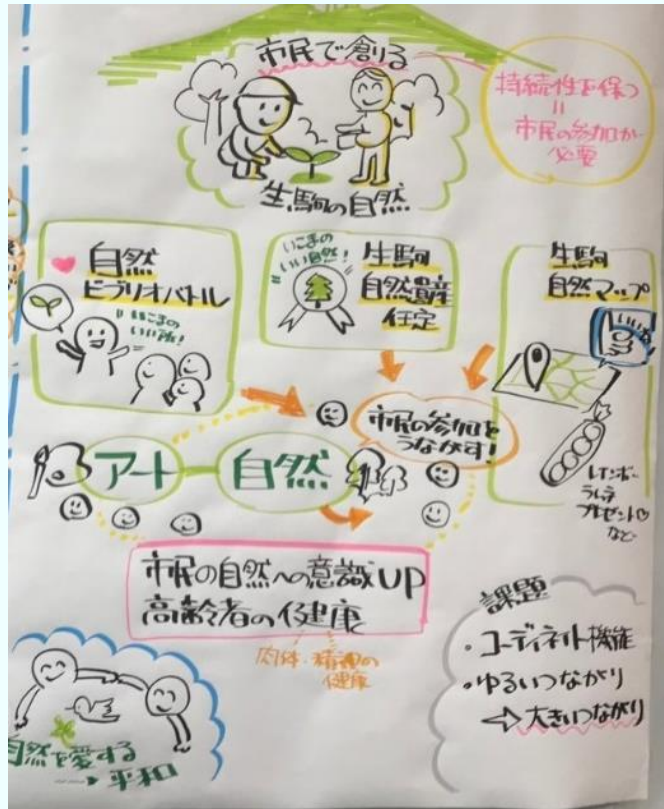 市民で創る
生駒の自然
持続性を保つ
=
市民の参加が
必要
自然
ビブリオバトル
いこまの
いい所!
いこまの
いい自然!
生駒
自然遺産
任定
生駒
自然マップ
いいね
市民の参加を
うながす!
アート
自然
レインボー
ラムネ
プレゼント
など
市民の自然への意識UP
高齢者の健康
肉体・精神の
健康
課題
・コーディネート機能
・ゆるいつながり
⇨大きいつながり
自然を愛する
平和